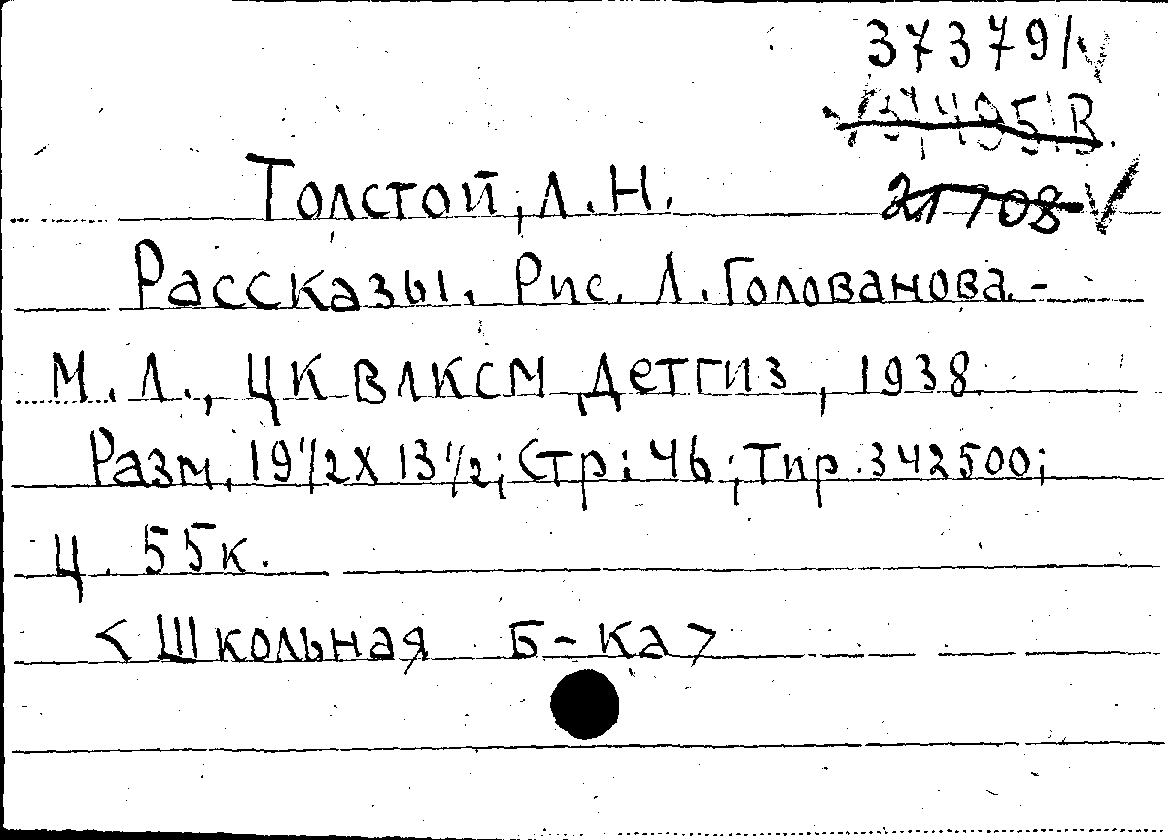 37379/V
Толстой, Л.Н.
21708 V
Рассказы. Рис. Л. Голованова. -
М. Л., ЦК ВЛКСМ Детгиз, 1938.
Разм. 19 1/2 х 13 1/2; Стр: 46; Тир. 342500;
Ц. 55к.
<Школьная Б-ка>